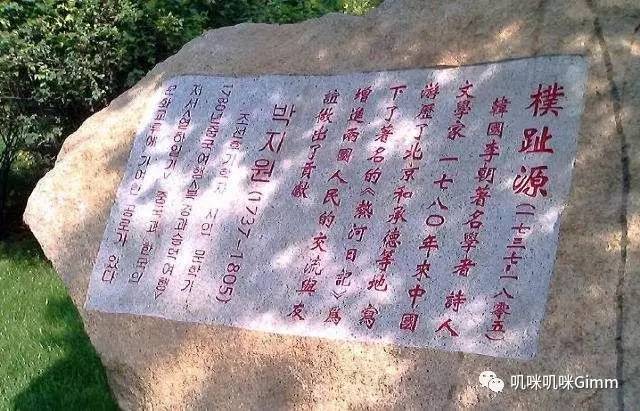 樸趾源(一七三七-一八零五)
韓國李朝著名學者 詩人
文學家 一七八○年來中國
游歷了北京和承德等地 寫
下了著名的《熱河日記》爲
增進兩國人民的交流與友
誼做出了貢獻
박지원(1737-1805)
조선후기학자 시인 문학가
1780년중국여행<북경과승덕여행>
저서<열하일기> 중국과 한국의
문화교류에 기여한 공로가 있다
叽咪叽咪Gimm